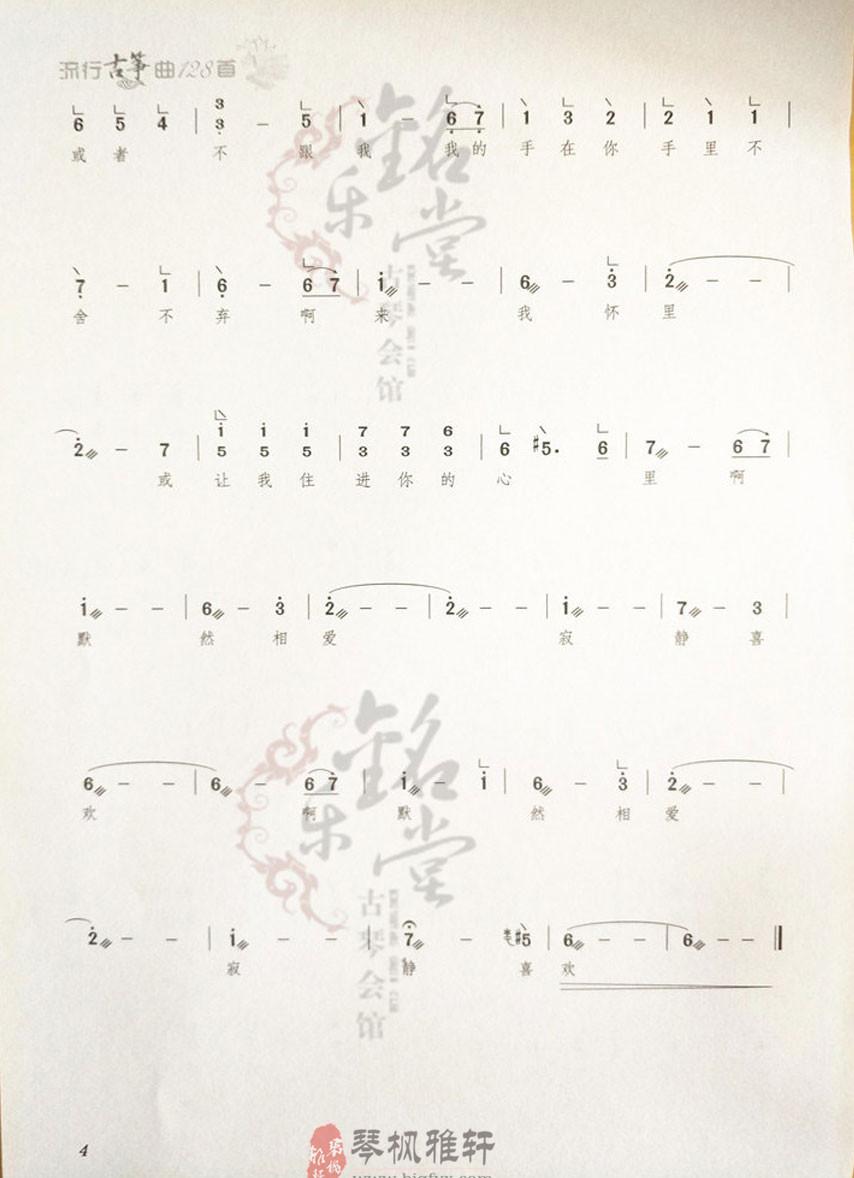 流行古筝曲128首
6 5 4 | 3 3 – 5 | 1 – 6 7 | 1 3 2 | 2 1 1 |
或者 不 跟 我 我的 手 在 你 手 里 不
7 – 1 | 6 – 6 7 | i – – | 6 – 3 | 2 – – |
舍 不 弃 啊 来 我 怀 里
2 – 7 | i i i | 7 7 6 | 6 #5. 6 | 7 – 6 7 |
5 5 5 3 3 3
或 让 我 住 进 你 的 心 里 啊
i – – | 6 – 3 | 2 – – | 2 – – | i – – | 7 – 3 |
默 然 相 爱 寂 静 喜
6 – – | 6 – 6 7 | i – i | 6 – 3 | 2 – – |
欢 啊 默 然 相 爱
2 – – | i – – | 7 – #5 | 6 – – | 6 – – ‖
寂 静 喜 欢
銘乐堂
古琴会馆
銘乐堂
古琴会馆
4
琴枫雅轩